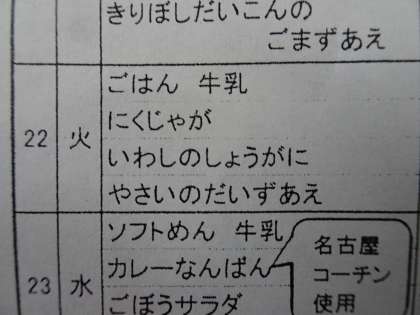 きりぼしだいこんの
ごまずあえ
22 火
ごはん 牛乳
にくじゃが
いわしのしょうがに
やさいのだいずあえ
23 水
ソフトめん 牛乳
カレーなんばん
ごぼうサラダ
名古屋
コーチン
使用